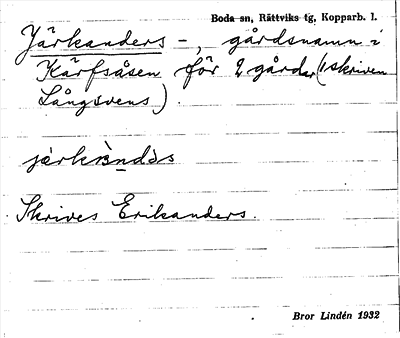 Boda sn, Rättviks tg, Kopparb. l.
Järkanders -, gårdsnamn i
Kärfsåsen för 2 gårdar (1 skriven
Långsvens).
Skrives Erikanders.
Bror Lindén 1932